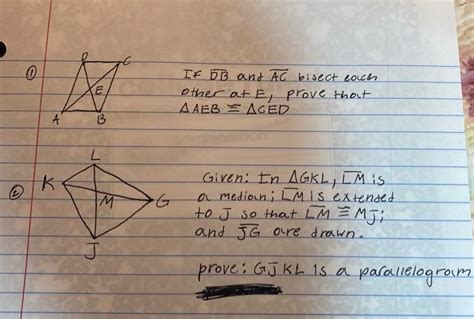 ①
D C
E
A B
If D̅B̅ and A̅C̅ bisect each
other at E, prove that
△AEB ≅ △CED
②
L
K
M
G
J
Given: In △GKL, L̅M̅ is
a median; L̅M̅ is extended
to J so that L̅M̅ ≅ M̅J̅;
and J̅G̅ are drawn.
prove: GJKL is a parallelogram